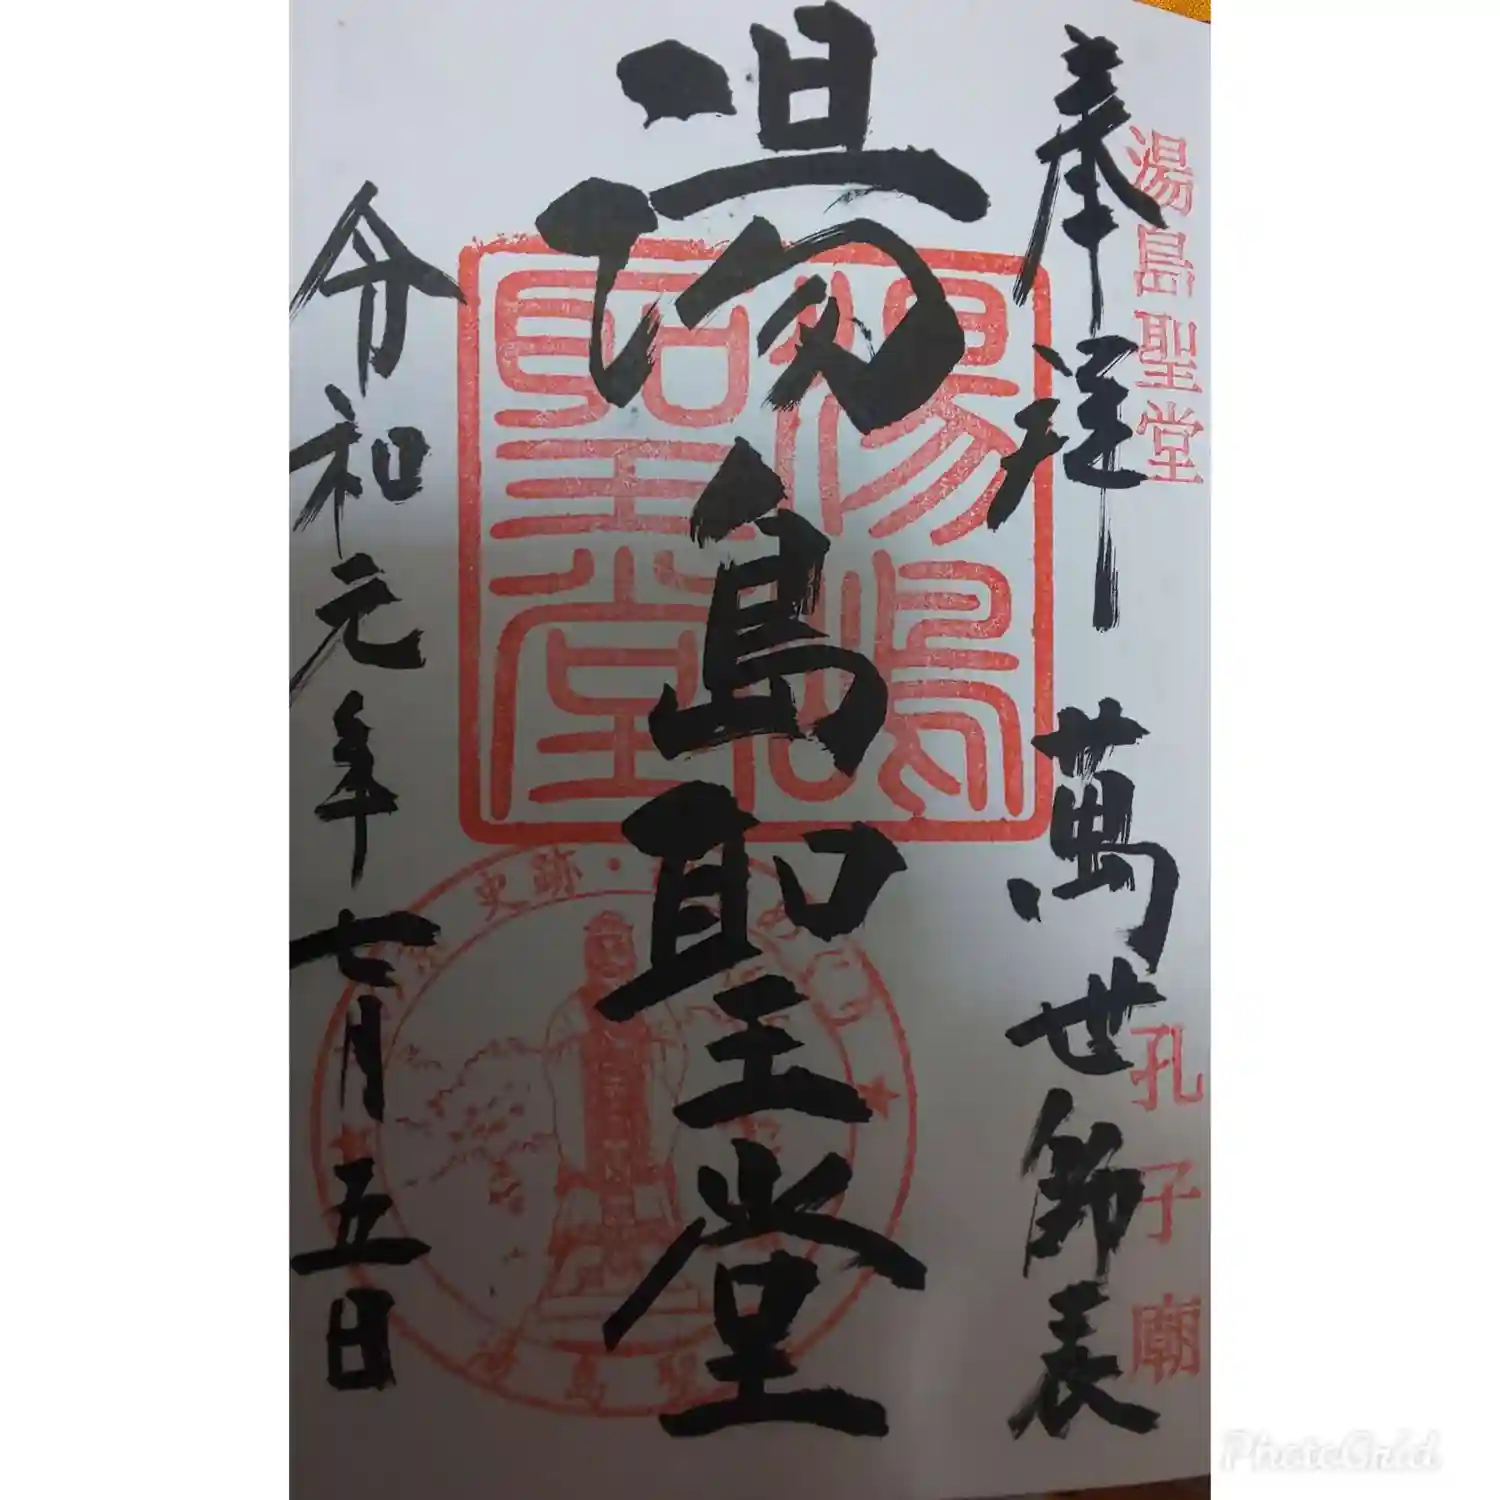 湯島聖堂
孔子廟
奉拝 萬世師表
湯島聖堂
湯島聖堂
史跡・
湯島聖
令和元年七月五日
PhotoGrid